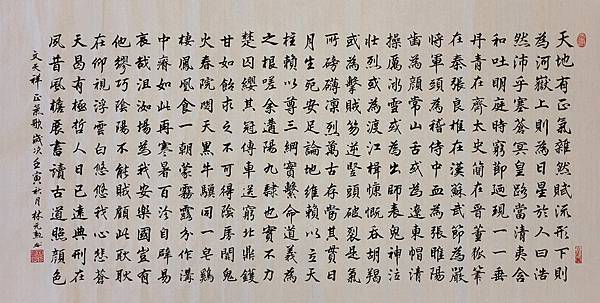 天地有正氣雜然賦流形下則
為河嶽上則為日星於人曰浩
然沛乎塞蒼冥皇路當清夷含
和吐明庭時窮節迺現一一垂
丹青在齊太史簡在晉董狐筆
在秦張良椎在漢蘇武節為嚴
將軍頭為嵇侍中血為張睢陽
齒為顏常山舌或為遼東帽清
操厲冰雪或為出師表鬼神泣
壯烈或為渡江楫慷慨吞胡羯
或為擊賊笏逆豎頭破裂是氣
所磅礡凜烈萬古存當其貫日
月生死安足論地維賴以立天
柱賴以尊三綱實繫命道義為
之根嗟余遘陽九隸也實不力
楚囚纓其冠傳車送窮北鼎鑊
甘如飴求之不可得陰房闃鬼
火春院閟天黑牛驥同一皂鷄
棲鳳凰食一朝蒙霧露分作溝
中瘠如此再寒暑百沴自辟易
哀哉沮洳場為我安樂國豈有
他繆巧陰陽不能賊顧此耿耿
在仰視浮雲白悠悠我心悲蒼
天曷有極哲人日已遠典刑在
夙昔風檐展書讀古道照顏色
文天祥正氣歌歲次壬寅秋月林元